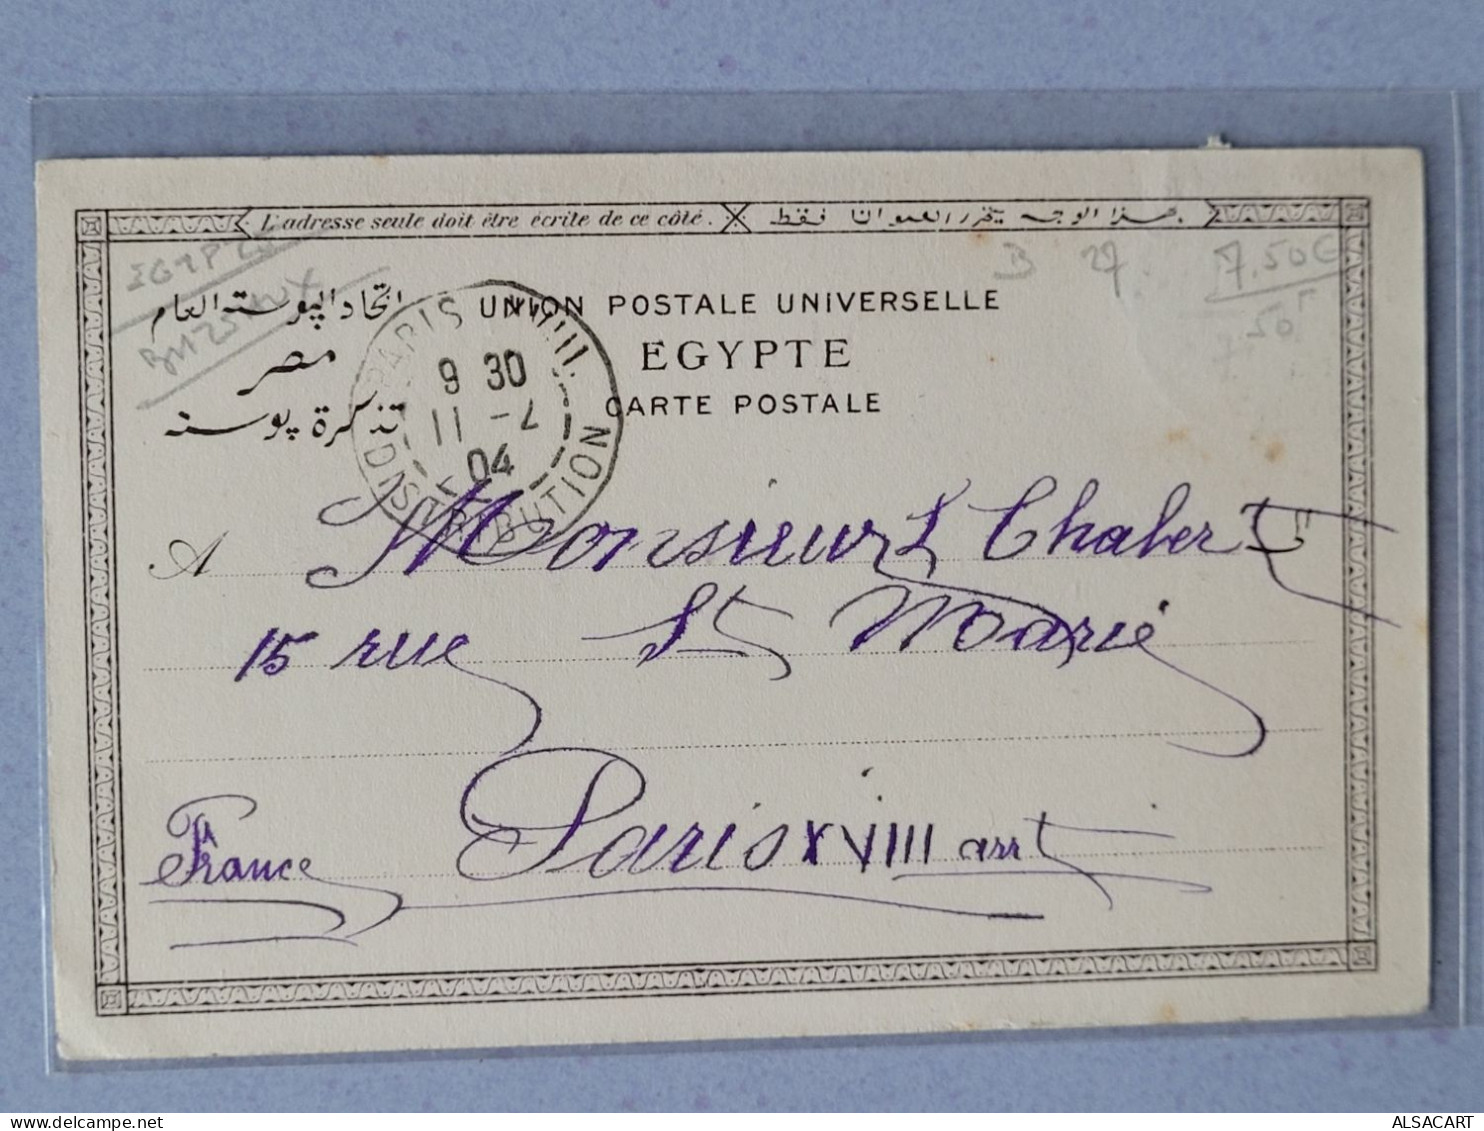 L'adresse seule doit être écrite de ce côté. هذا الوجه يتحرر العنوان فقط.
B 27 7.50€
50F
اتحاد البوستة العام UNION POSTALE UNIVERSELLE
مصر EGYPTE
تذكرة بوستة CARTE POSTALE
PARIS XVIII.
9 30
11 - 7
04
DISTRIBUTION
A Monsieur L Chaber
15 rue St Marie
Paris XVIII arrt
France
ALSACART